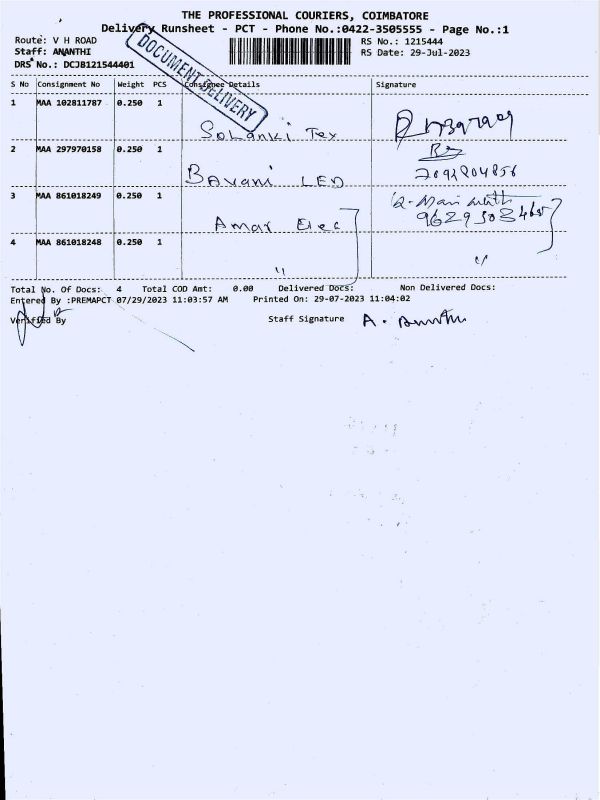 THE PROFESSIONAL COURIERS, COIMBATORE
Delivery Runsheet - PCT - Phone No.:0422-3505555 - Page No.:1
Route: V H ROAD
RS No.: 1215444
Staff: ANANTHI
RS Date: 29-Jul-2023
DRS No.: DCJB121544401
DOCUMENT DELIVERY
S No Consignment No Weight PCS Consignee Details Signature
1 MAA 102811787 0.250 1
Solanki Tex
2 MAA 297970158 0.250 1
Bavani LED 7092804856
3 MAA 861018249 0.250 1
Amar Elec
4 MAA 861018248 0.250 1
"
Total No. Of Docs: 4 Total COD Amt: 0.00 Delivered Docs: Non Delivered Docs:
Entered By :PREMAPCT 07/29/2023 11:03:57 AM Printed On: 29-07-2023 11:04:02
Verified By Staff Signature